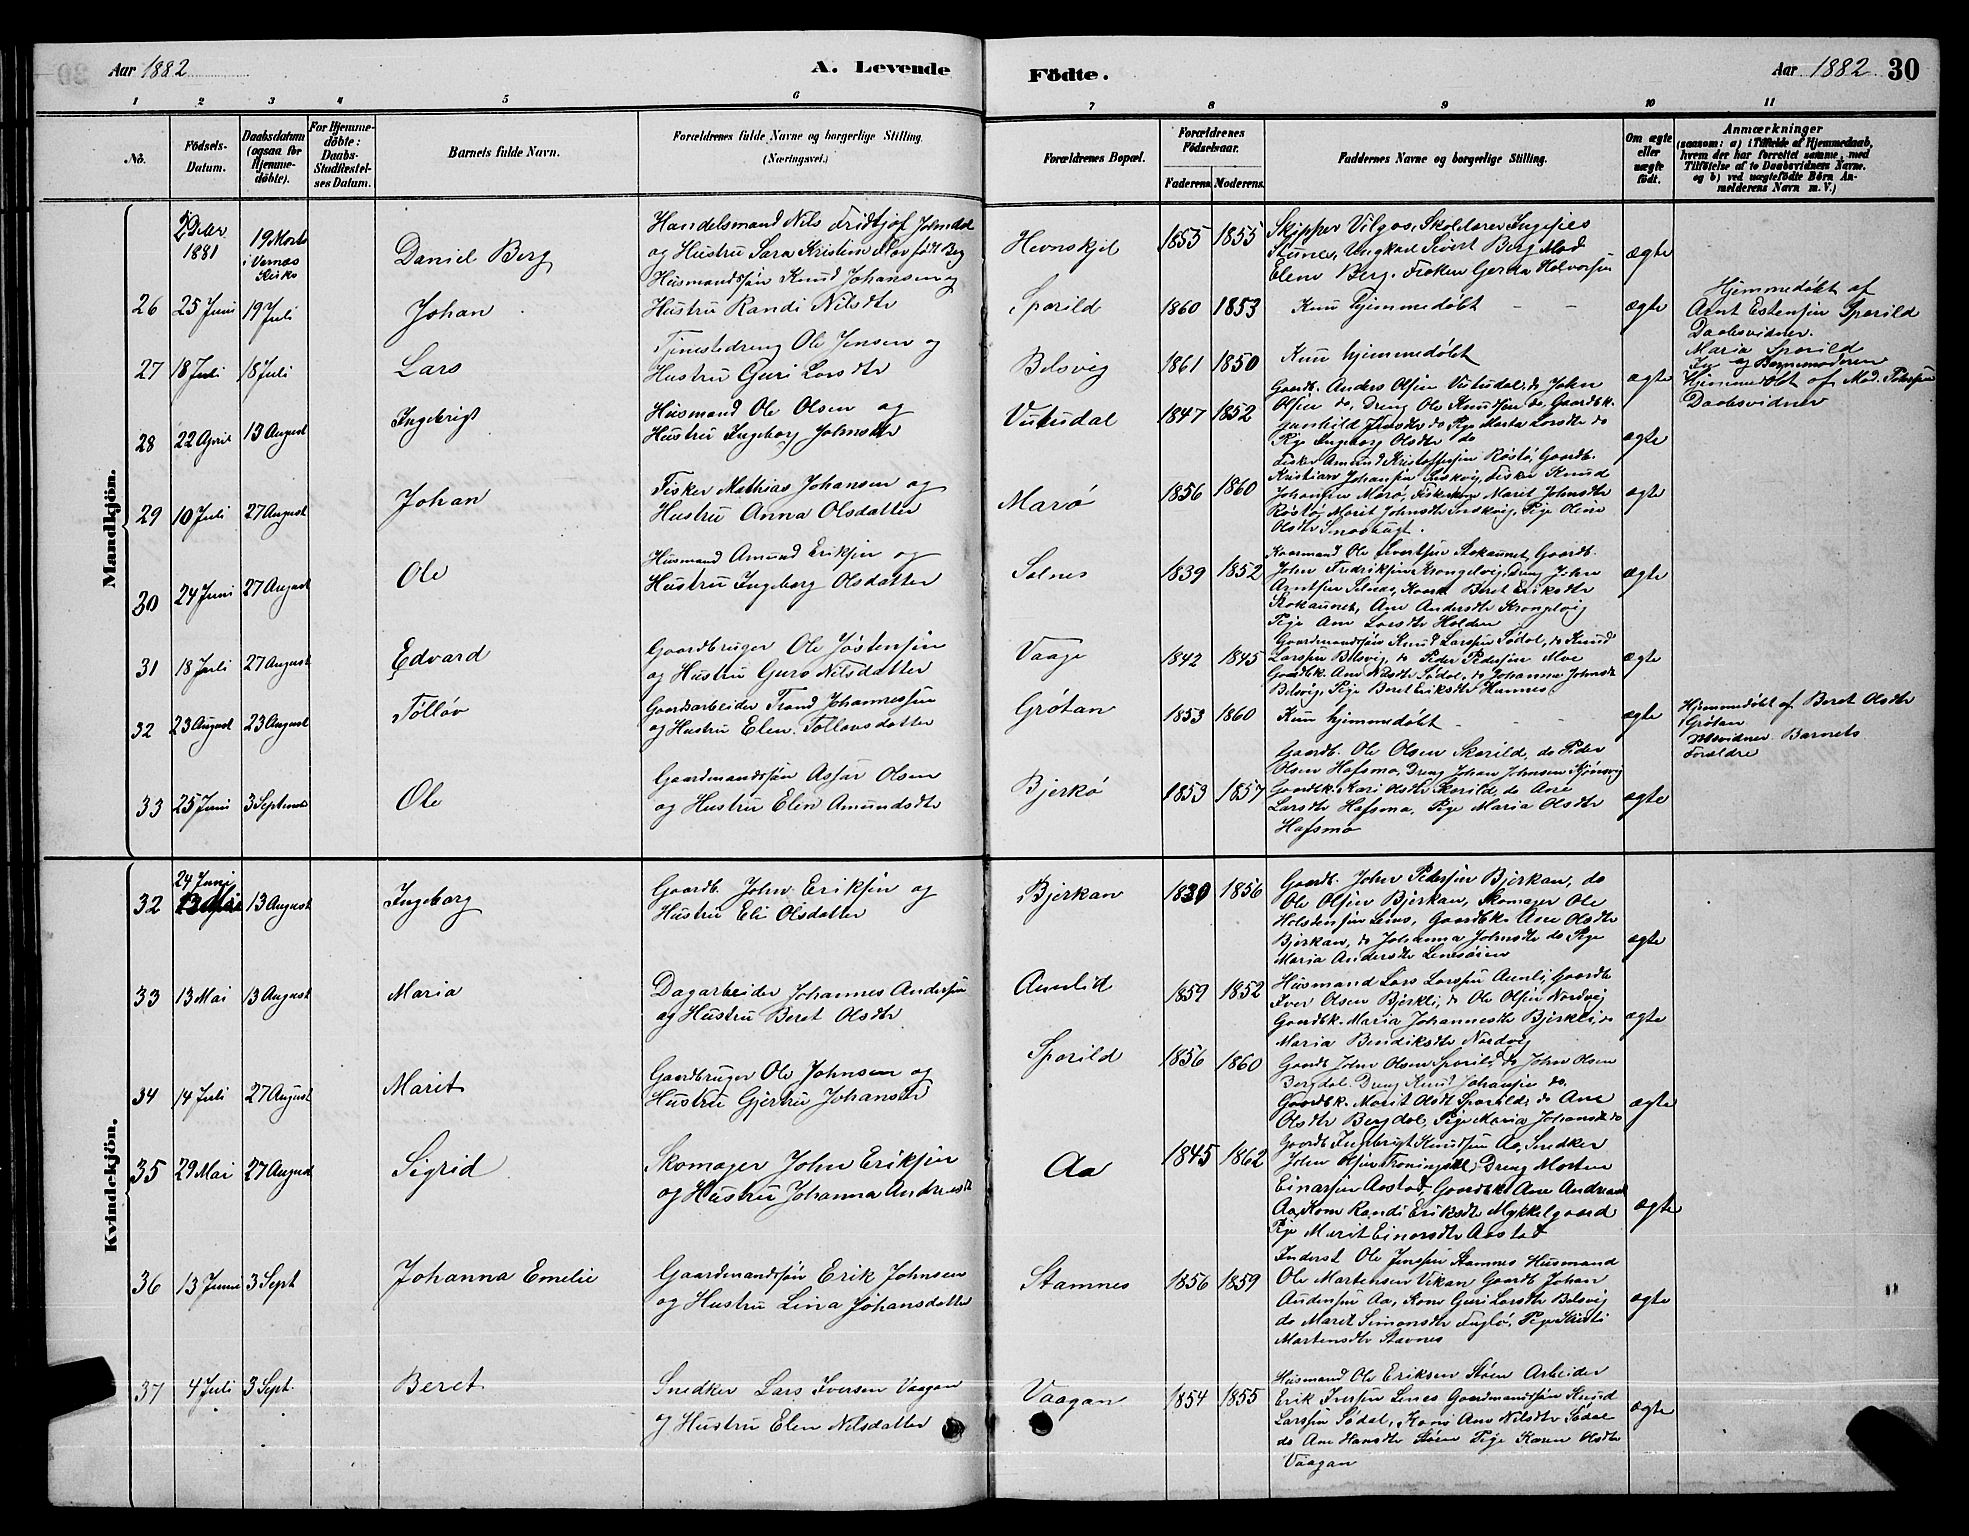 Aar 1882
A. Levende
Födte.
Aar 1882 30
1 2 3 4 5 6 7 8 9 10 11
No.
Födsels-
Datum.
Daabsdatum
(ogsaa for
Hjemme-
döbte).
For Hjemme-
döbte:
Daabs-
Stadfæstel-
ses Datum.
Barnets fulde Navn.
Forældrenes fulde Navne og borgerlige Stilling
(Næringsvei.)
Forældrenes Bopæl.
Forældrenes
Födselsaar.
Faderens Moderens
Faddernes Navne og borgerlige Stilling.
Om ægte
eller
uægte
födt.
Anmærkninger
(saasom: a) i Tilfælde af Hjemmedaab,
hvem der har forrettet samme, med
Tilföielse af to Daabsvidners Navne.
og b) ved uægtefödte Börn An-
melderens Navn m. V.)
Mandkjön.
1881
19 Marts
i Vernæs
Kirke
Daniel Berg
Handelsmand Nils Fridtjof Johnsdal
og Hustru Sara Kristin Elov født Berg
Hevnskjel
1855 1855
Skipper
Elene Berg. Frøken Gerda Halvorsen
ægte
26 25 Juni 19 Juli
Johan
Husmandssøn Knud Johansen og
Hustru Randi Nilsdtr
Sporild
1860 1853
Kun hjemmedøbt - -
ægte
Hjemmedøbt af
Arnt Estensen Sporild
Daabsvidner.
Maria Sporild
og Barnemoderen
27 18 Juli 18 Juli
Lars
Tjenestedreng Ole Jensen og
Hustru Guri Larsdtr
Belsvig
1861 1850
Kun hjemmedøbt
ægte
Hjemmedøbt af Mad. Petersen
Daabsvidner
28 22 April 13 August
Ingebrigt
Husmand Ole Olsen og
Hustru Ingeborg Johnsdtr
Vutudal
1847 1852
Gaardb. Anders Olsen Vutudal, do John
Olsen do, Dreng Ole Knutsen do, Gaardbk.
Gunhild Jensdtr do Pige Marta Larsdtr do
Pige Ingeborg Olsdtr do
ægte
29 10 Juli 27 August
Johan
Fisker Mathias Johansen og
Hustru Anna Olsdatter
Marø
1856 1860
Fisker Amund Kristoffersen Røstø, Gaardb.
Kristian Johansen Inskvig, Fisker Knud
Johansen Marø, Fiskerkone Marit Johnsdtr
Røstø, Marit Johnsdtr Inskvig, Pige Oline
Olsdtr Snebugt.
ægte
30 24 Juni 27 August
Ole
Husmand Amund Eriksen og
Hustru Ingeborg Olsdatter
Selnes
1839 1852
Kaarmand Ole Sivertsen Stokaunet, Gaardb.
John Fredriksen Krongelvig, Dreng John
Arntsen Selnes, Kaark. Beret Eriksdtr
Stokaunet, Ane Andersdtr Krongelvig
Pige Ane Larsdtr Holden
ægte
31 18 Juli 27 August
Edvard
Gaardbruger Ole Jøstensen
og Hustru Guro Nilsdatter
Vaage
1842 1845
Gaardmandssøn Knud Larssen Sødal, do Knud
Larssen Belsvig, do Peder Pedersen Moe
Gaardbk. Ane Nilsdtr Sødal, do Johanna Johnsdtr
Belsvig, Pige Beret Eriksdtr Hunnes
ægte
32 23 August 23 August
Tølløv
Gaardarbeider Trond Johannessen
og Hustru Elen Tollevsdatter
Grøtan
1853 1860
Kun hjemmedøbt - - -
ægte
Hjemmedøbt af Beret Olsdtr
Grøtan
Barnets
Forældre
33 25 Juni 3 September
Ole
Gaardmandssøn Asfar Olsen
og Hustru Elen Amundsdtr
Bjerkø
1853 1857
Gaardb. Ole Olsen Skorild, do Peder
Olsen Hafsmo, Dreng Johan Johnsen
Gaardbk. Kari Olsdtr Skorild, do Ane
Larsdtr Hafsmo, Pige Maria Olsdtr
Hafsmo
ægte
Kvindekjön.
32 24 Juni 13 August
Ingeborg
Gaardb. John Eriksen og
Hustru Eli Olsdatter
Bjerkan
1830 1856
Gaardb. John Pedersen Bjerkan, do
Ole Olsen Bjerkan, Skomager Ole
Holstensen Lines, Gaardbk. Ane Olsdtr
Bjerkan, do Johanna Johnsdtr do Pige
Maria Andersdtr Linesøien
ægte
33 13 Mai 13 August
Maria
Dagarbeider Johannes Andersen
og Hustru Beret Olsdtr
Aunlid
1859 1852
Husmand Lars Larssen Aunli, Gaardb
Iver Olsen Bjerkli, do Ole Olsen Nordvig
Gaardbk. Maria Johannesdtr Bjerkli, do
Maria Bendiksdtr Nordvig
ægte
34 14 Juli 27 August
Marit
Gaardbruger Ole Johnsen og
Hustru Gjertru Johansdtr
Sporild
1856 1860
Gaardb John Olsen Sporild, do John Olsen
Bergdal. Dreng Knud Johansen do.
Gaardbk. Marit Olsdtr Sporild, do Ane
Olsdtr Bergdal, Pige Maria Johansdtr do
ægte
35 29 Mai 27 August
Sigrid
Skomager John Eriksen
og Hustru Johanna Andreasdtr
Aa
1845 1862
Gaardb Ingebrigt Knudsen Aa, Snedker
John Olsen Froningsdal, Dreng Morten
Einarsen Aastad, Gaardbk Ane Andreasd
Aa, Kone Randi Eriksdtr Mykkelgaard
Pige Marit Einarsdtr Aastad
ægte
36 13 Juni 3 Sept
Johanna Emelie
Gaardmandssøn Erik Johnsen
og Hustru Lina Johansdatter
Stamnes
1856 1859
Inderst Ole Jenssen Stamnes Husmand
Ole Martensen Vikan Gaardb Johan
Audensen Aa, Kone Guri Larsdtr Belsvig
do Marit Simonsdtr Fuglø, Pige Kristi
Martensdtr Stavnes
ægte
37 4 Juli 3 Sept.
Beret
Snedker Lars Iversen Vaagan
og Hustru Elen Nilsdatter
Vaagan
1854 1855
Husmand Ole Eriksen Støen Arbeider
Erik Iversen Lines Gaardmandssøn Knud
Larssen Sødal, Kone Ane Nilsdtr Sødal
do Ane Hansdtr Støen Pige Karen Olsdtr
Vaagan
ægte